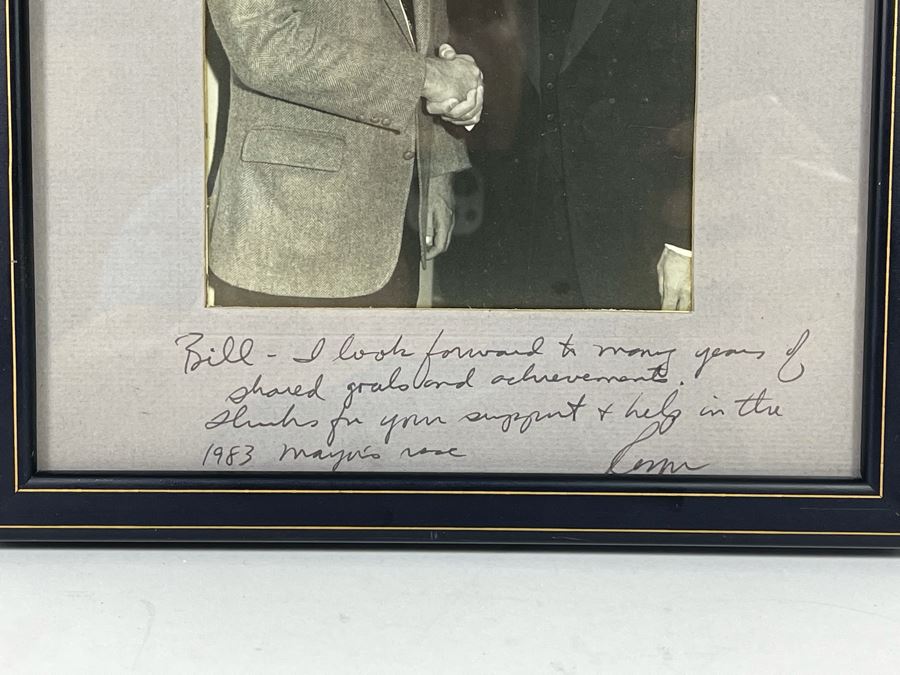 Bill - I look forward to many years of
shared goals and achievements.
Thanks for your support & help in the
1983 Mayor's race